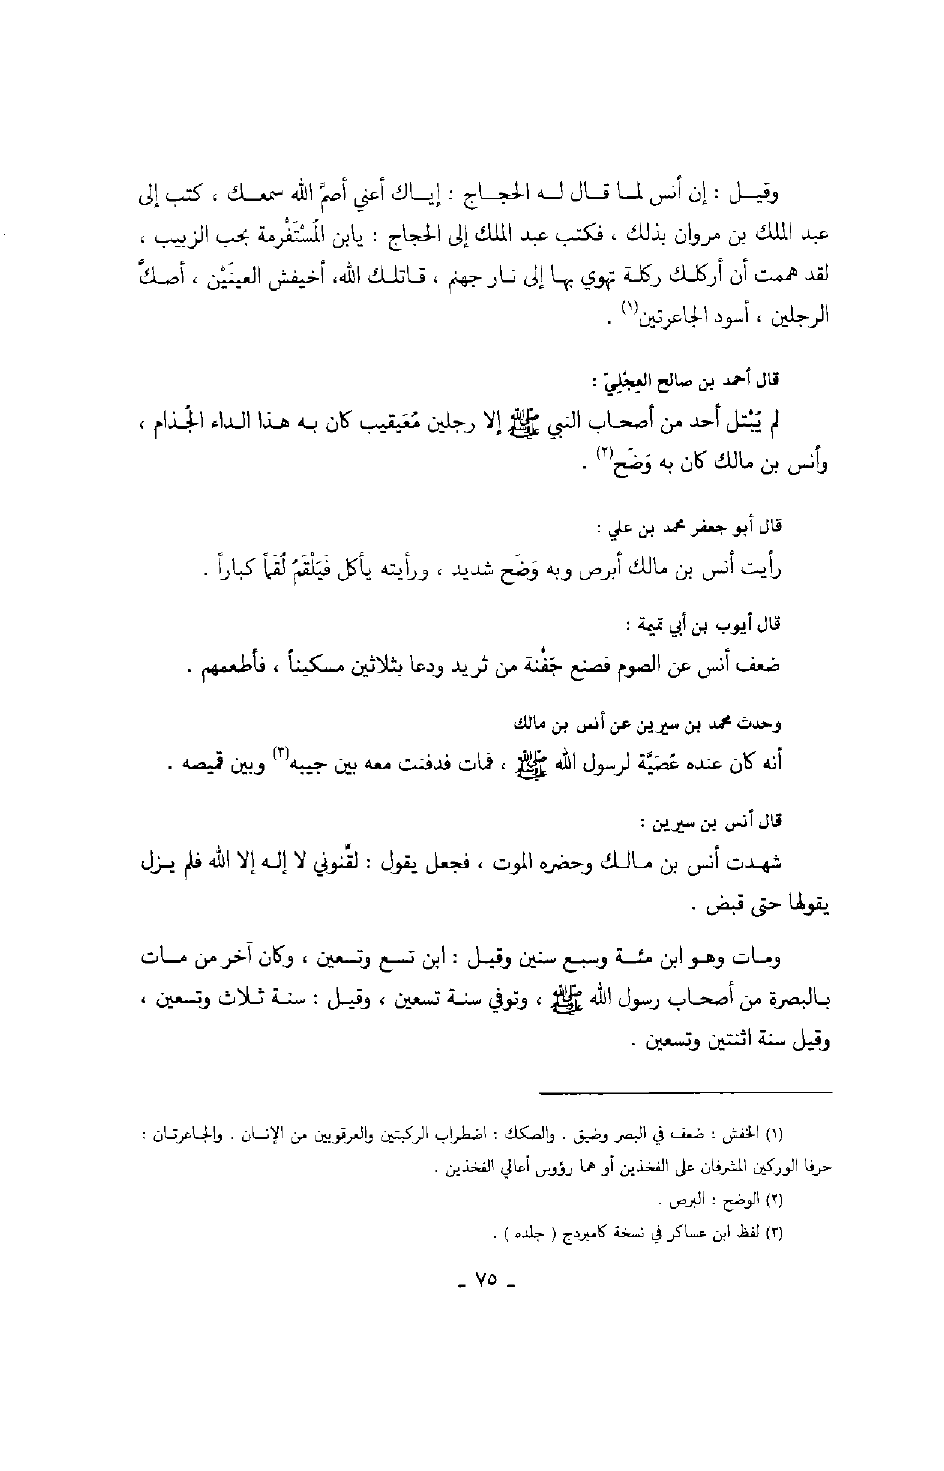 وقيل : إن أنس لما قال له الحجاج : إياك أعني أصمَّ الله سمعك ، كتب إلى
عبد الملك بن مروان بذلك ، فكتب عبد الملك إلى الحجاج : يابن المُسْتَفْرِمة بحب الزبيب ،
لقد هممت أن أركلك ركلة تهوي بها إلى نار جهنم ، قاتلك الله، أخيفش العينَيْن ، أصكَّ
الرجلين ، أسود الجاعرتين(١) .
قال أحمد بن صالح العِجْلِيّ :
لم يُبْتل أحد من أصحاب النبي ﷺ إلا رجلين مُعَيقيب كان به هذا الداء الجُذام ،
وأنس بن مالك كان به وَضَح(٢) .
قال أبو جعفر محمد بن علي :
رأيت أنس بن مالك أبرص وبه وَضَح شديد ، ورأيته يأكل فَيَلْقَمُ لُقَماً كباراً .
قال أيوب بن أبي تميمة :
ضعف أنس عن الصوم فصنع جَفْنة من ثريد ودعا بثلاثين مسكيناً ، فأطعمهم .
وحدث محمد بن سيرين عن أنس بن مالك
أنه كان عنده عُصَيَّة لرسول الله ﷺ ، فمات فدفنت معه بين جيبه(٣) وبين قميصه .
قال أنس بن سيرين :
شهدت أنس بن مالك وحضره الموت ، فجعل يقول : لقِّنوني لا إله إلا الله فلم يزل
يقولها حتى قبض .
ومات وهو ابن مئة وسبع سنين وقيل : ابن تسع وتسعين ، وكان آخر من مات
بالبصرة من أصحاب رسول الله ﷺ ، وتوفي سنة تسعين ، وقيل : سنة ثلاث وتسعين ،
وقيل سنة اثنتين وتسعين .
(١) الخفش : ضعف في البصر وضيق . والصكك : اضطراب الركبتين والعرقوبين من الإنسان . والجاعرتان :
حرفا الوركين المشرفان على الفخذين أو هما رؤوس أعالي الفخذين .
(٢) الوضح : البرص .
(٣) لفظ ابن عساكر في نسخة كامبردج ( جلده ) .
ـ ٧٥ ـ